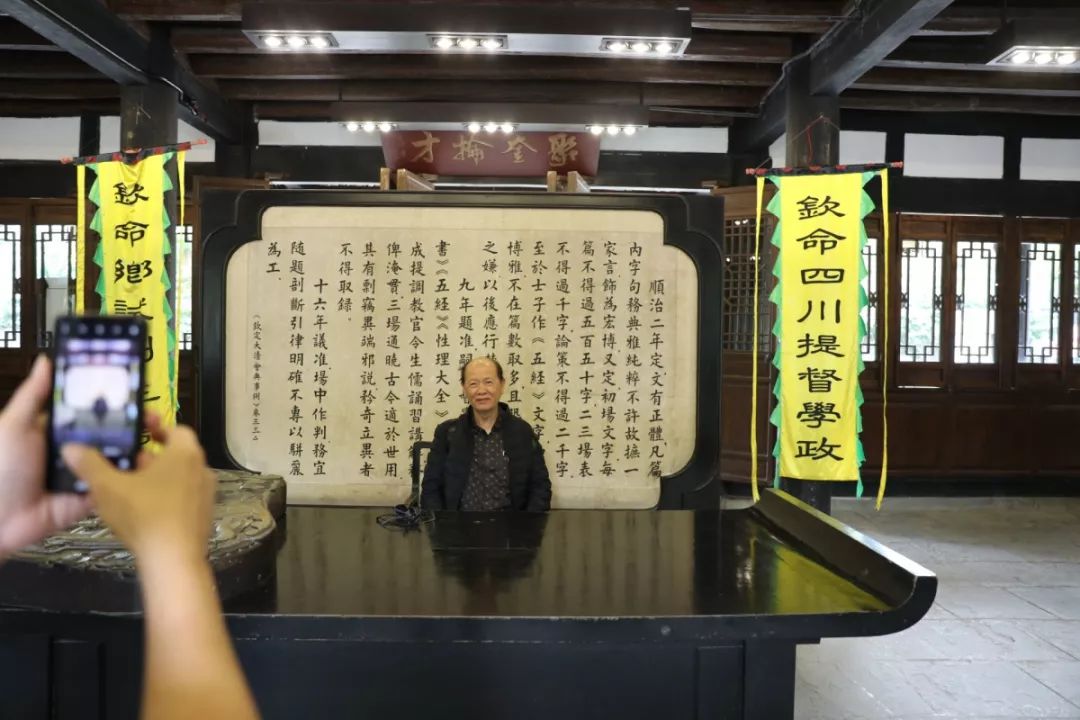 聚奎掄才
欽命四川提督學政
順治二年定文有正體凡篇
内字句務典雅純粹不許故摭一
家言飾為宏博又定初場文字每
篇不得過五百五十字二三場表
不得過千字論策不得過二千字
至於士子作《五經》文字
博雅不在篇數取多且恐
之嫌以後應行
九年題准
書》《五經》《性理大全》
成提調教官令生儒誦習講解
俾淹貫三場通曉古今適於世用
其有剽竊異端邪說矜奇立異者
不得取錄
十六年議准場中作判務宜
隨題剖斷引律明確不專以駢麗
為工
《欽定大清會典事例》卷三三二
欽命鄉試